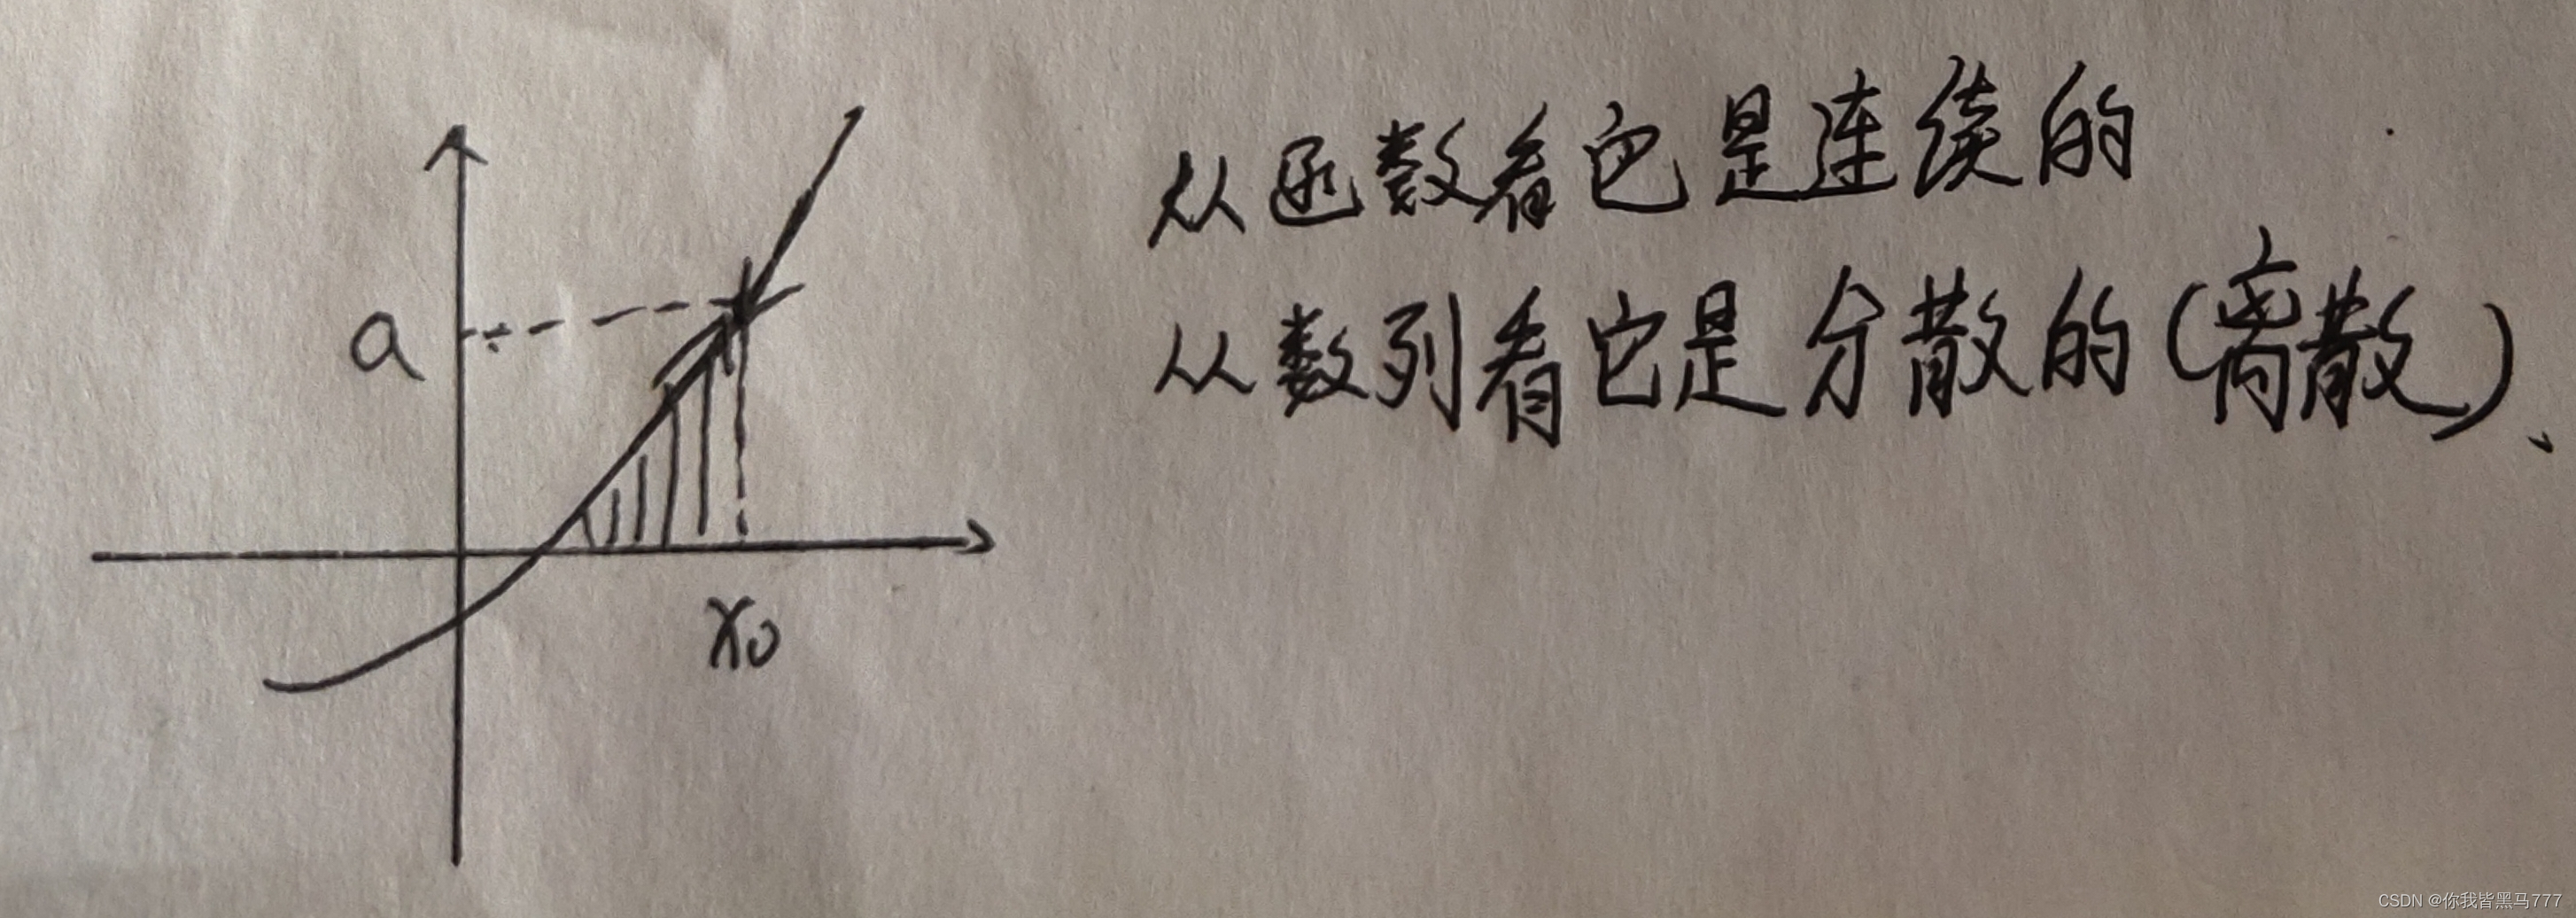 从函数看它是连续的
从数列看它是分散的(离散)、
a
x₀
CSDN @你我皆黑马777